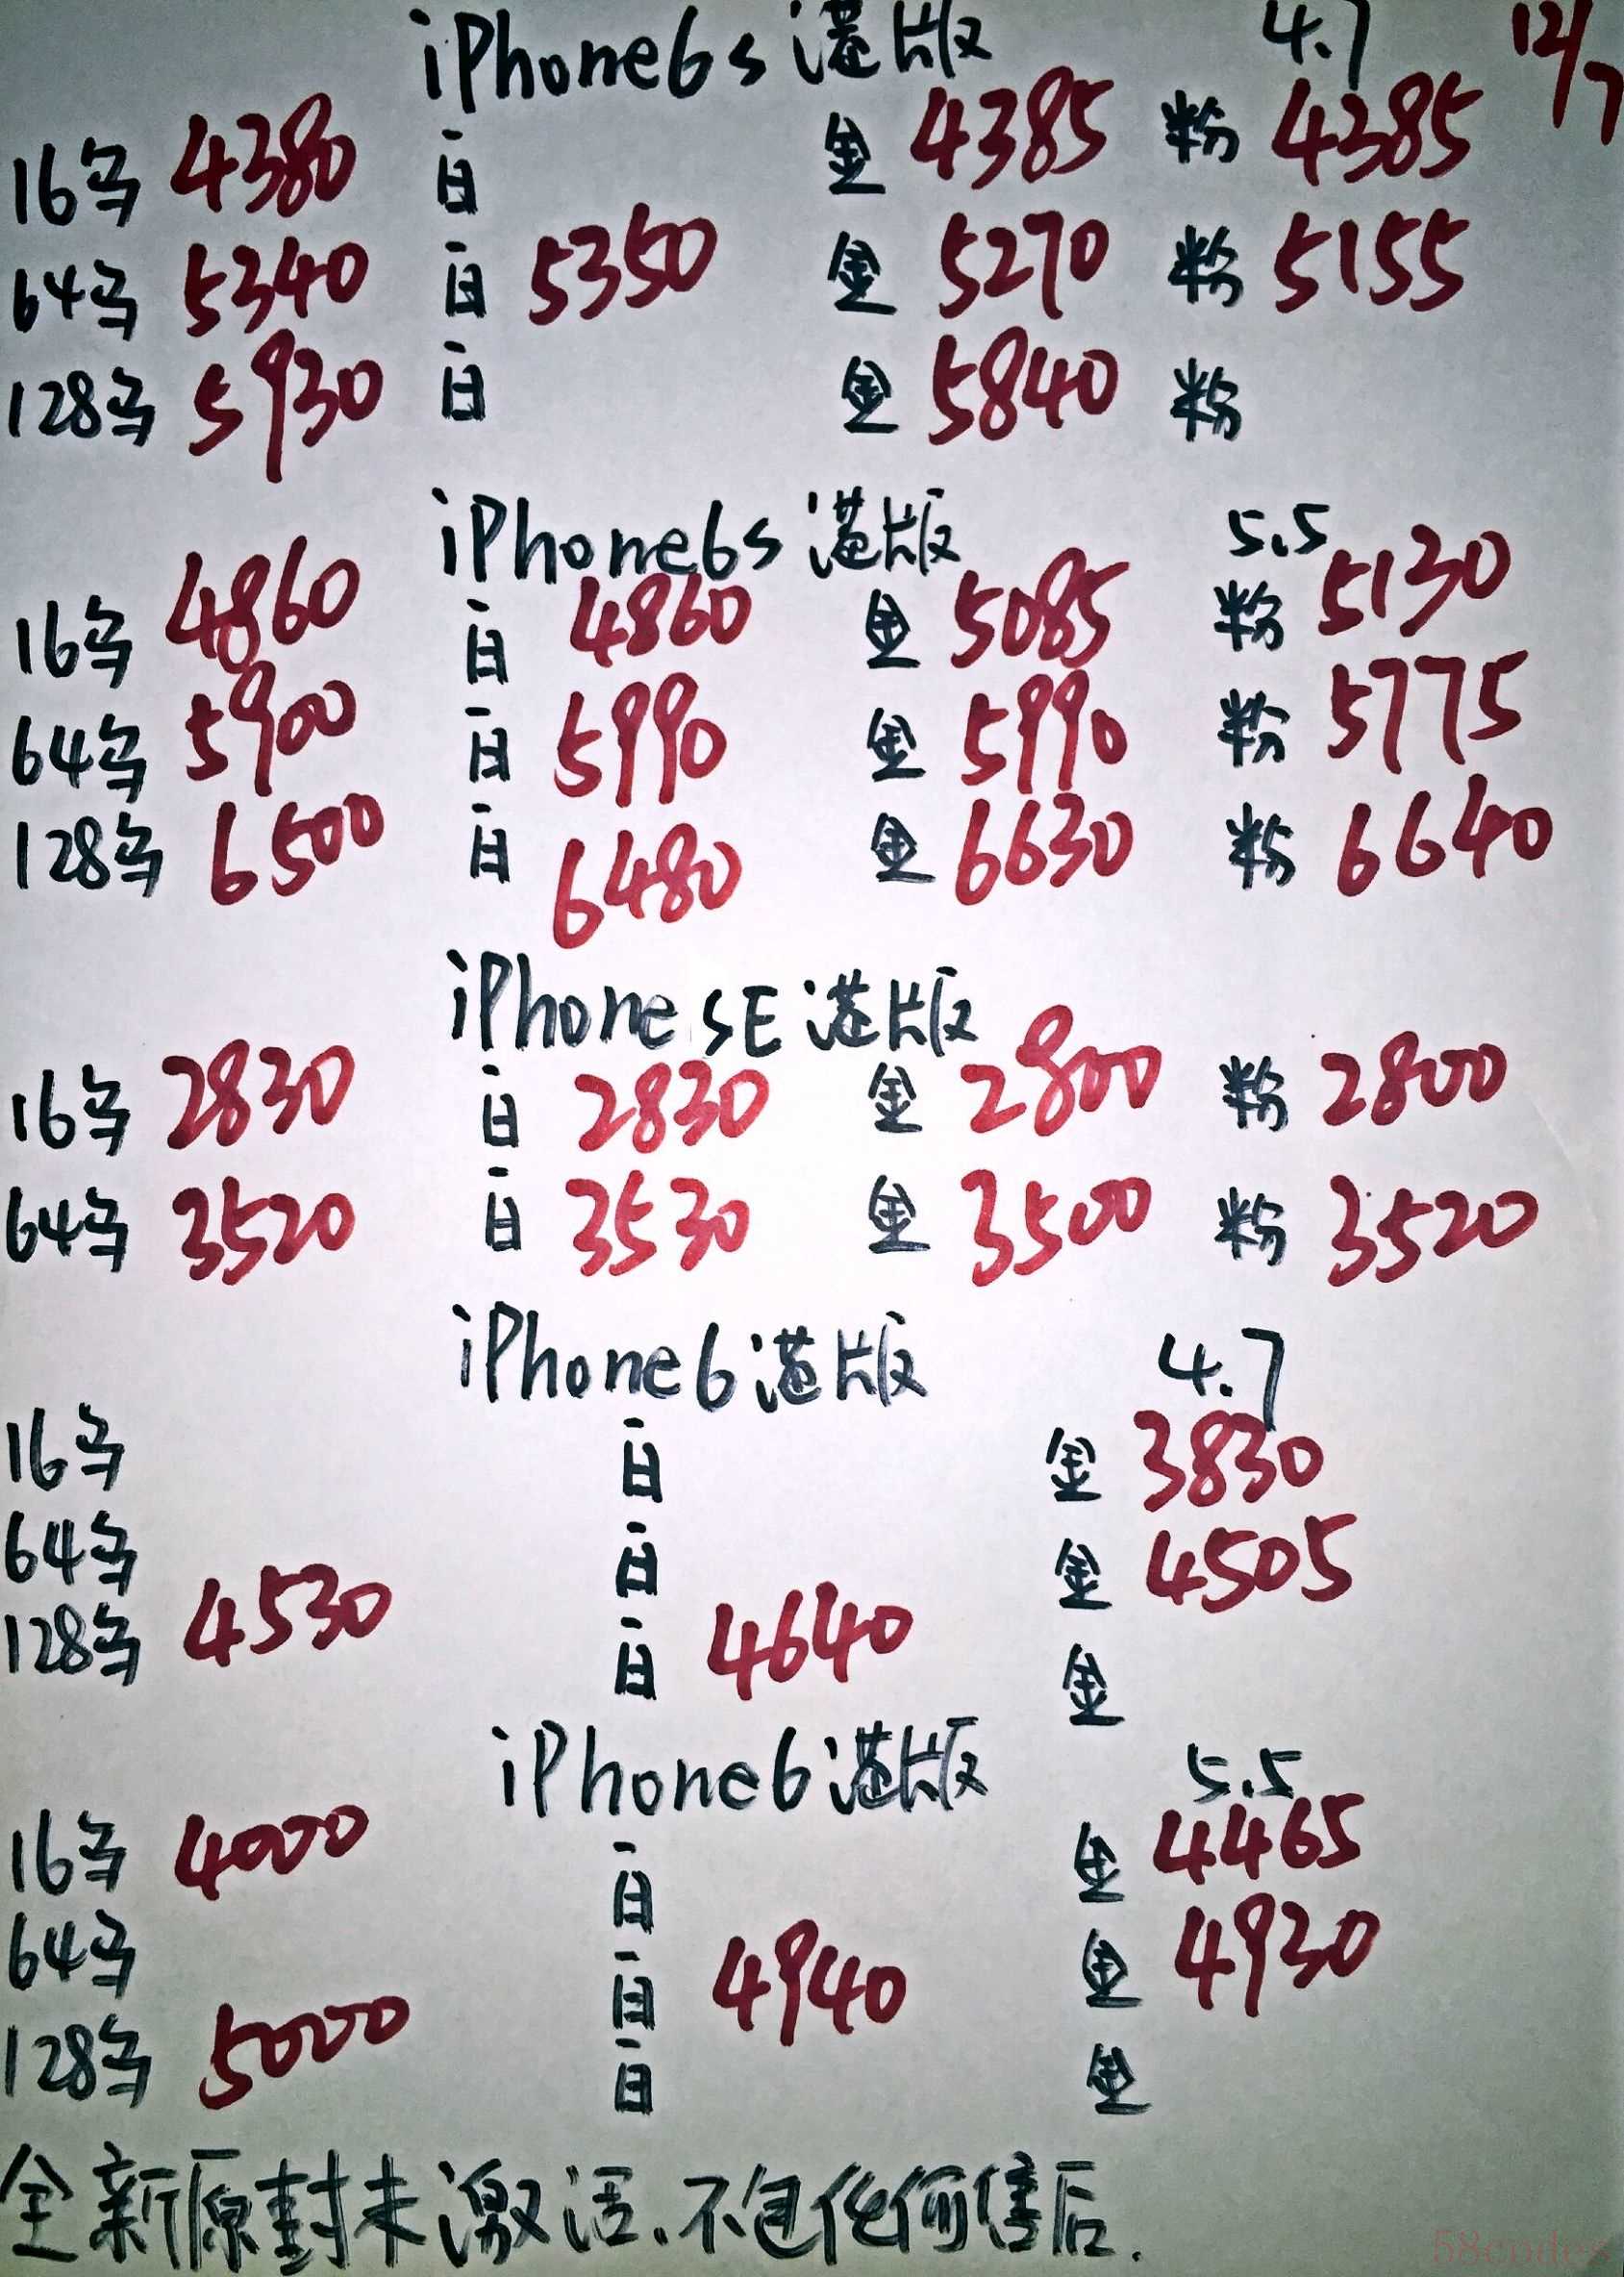 iPhone6s港版 4.7 12/7
16马 4380 白 金 4385 粉 4385
64马 5340 白 5350 金 5270 粉 5155
128马 5930 白 金 5840 粉
iPhone6s港版 5.5
16马 4860 白 4860 金 5085 粉 5130
64马 5900 白 5990 金 5990 粉 5775
128马 6500 白 6480 金 6630 粉 6640
iPhone SE港版
16马 2830 白 2830 金 2800 粉 2800
64马 3520 白 3530 金 3500 粉 3520
iPhone6港版 4.7
16马 白 金 3830
64马 白 金 4505
128马 4530 白 4640 金
iPhone6港版 5.5
16马 4000 白 金 4465
64马 白 4940 金 4930
128马 5000 白 金
全新原封未激活.不包任何售后.